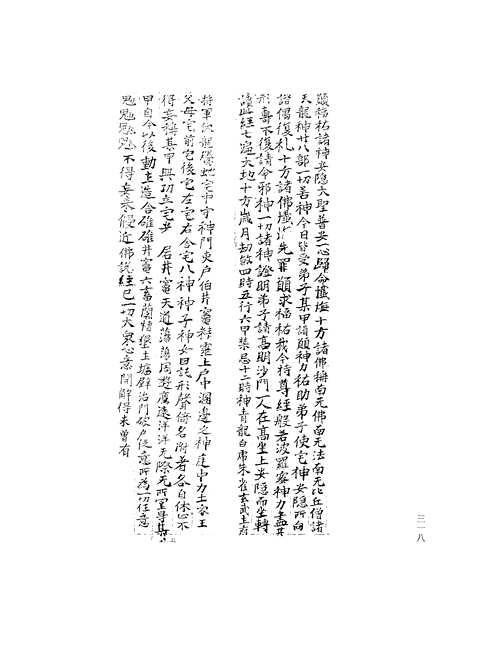 願福祐諸神安隱大聖普共一心歸命懺悔十方諸佛稱南无佛南无法南无比丘僧諸
天龍神廿八部一切善神今日皆受弟子某甲請願神力祐助弟子使宅神安隱所向
諧偶復礼十方諸佛懺先罪願求福祐我今持尊經般若波羅蜜神力
形壽不復請令邪神一切諸神證明弟子請高明沙門一人在高坐上安隱而坐轉
讀此經七遍天地十方歲月劫煞四時五行六甲禁忌十二時神青龍白虎朱雀玄武
將軍 龍騰蛇宅中守神門夾戶伯井竈精靈上戶中溷邊之神庭中力士家王
父母宅前宅後宅左宅右令宅八神神子神女曰託形聲倚名附著各自休心不
得妄嬈某甲興功立宅 居井竈天道蕩蕩周遊廣遠洋洋无際无所罣
甲自今以後動土造舍碓磑井竈六畜蘭 堡土塘壁治門破戶從意所為一切任意
不得妄來侵近佛說經已一切大衆心意開解得未曾有
三一八